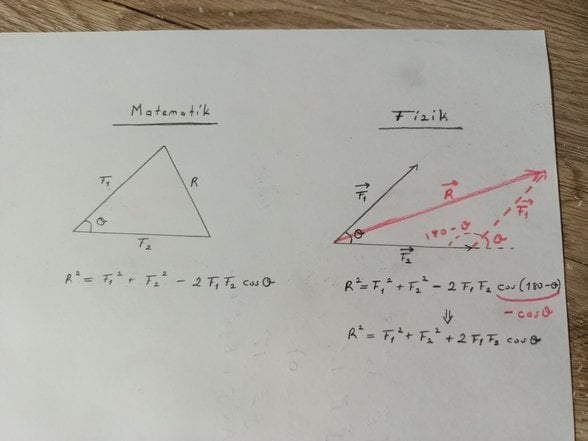 Matematik
F₁
R
θ
F₂
R² = F₁² + F₂² - 2 F₁ F₂ cosθ
Fizik
F₁→
R→
F₁→
θ
180-θ
θ
F₂→
R² = F₁² + F₂² - 2 F₁ F₂ cos(180-θ)
⇓
-cosθ
R² = F₁² + F₂² + 2 F₁ F₂ cosθ